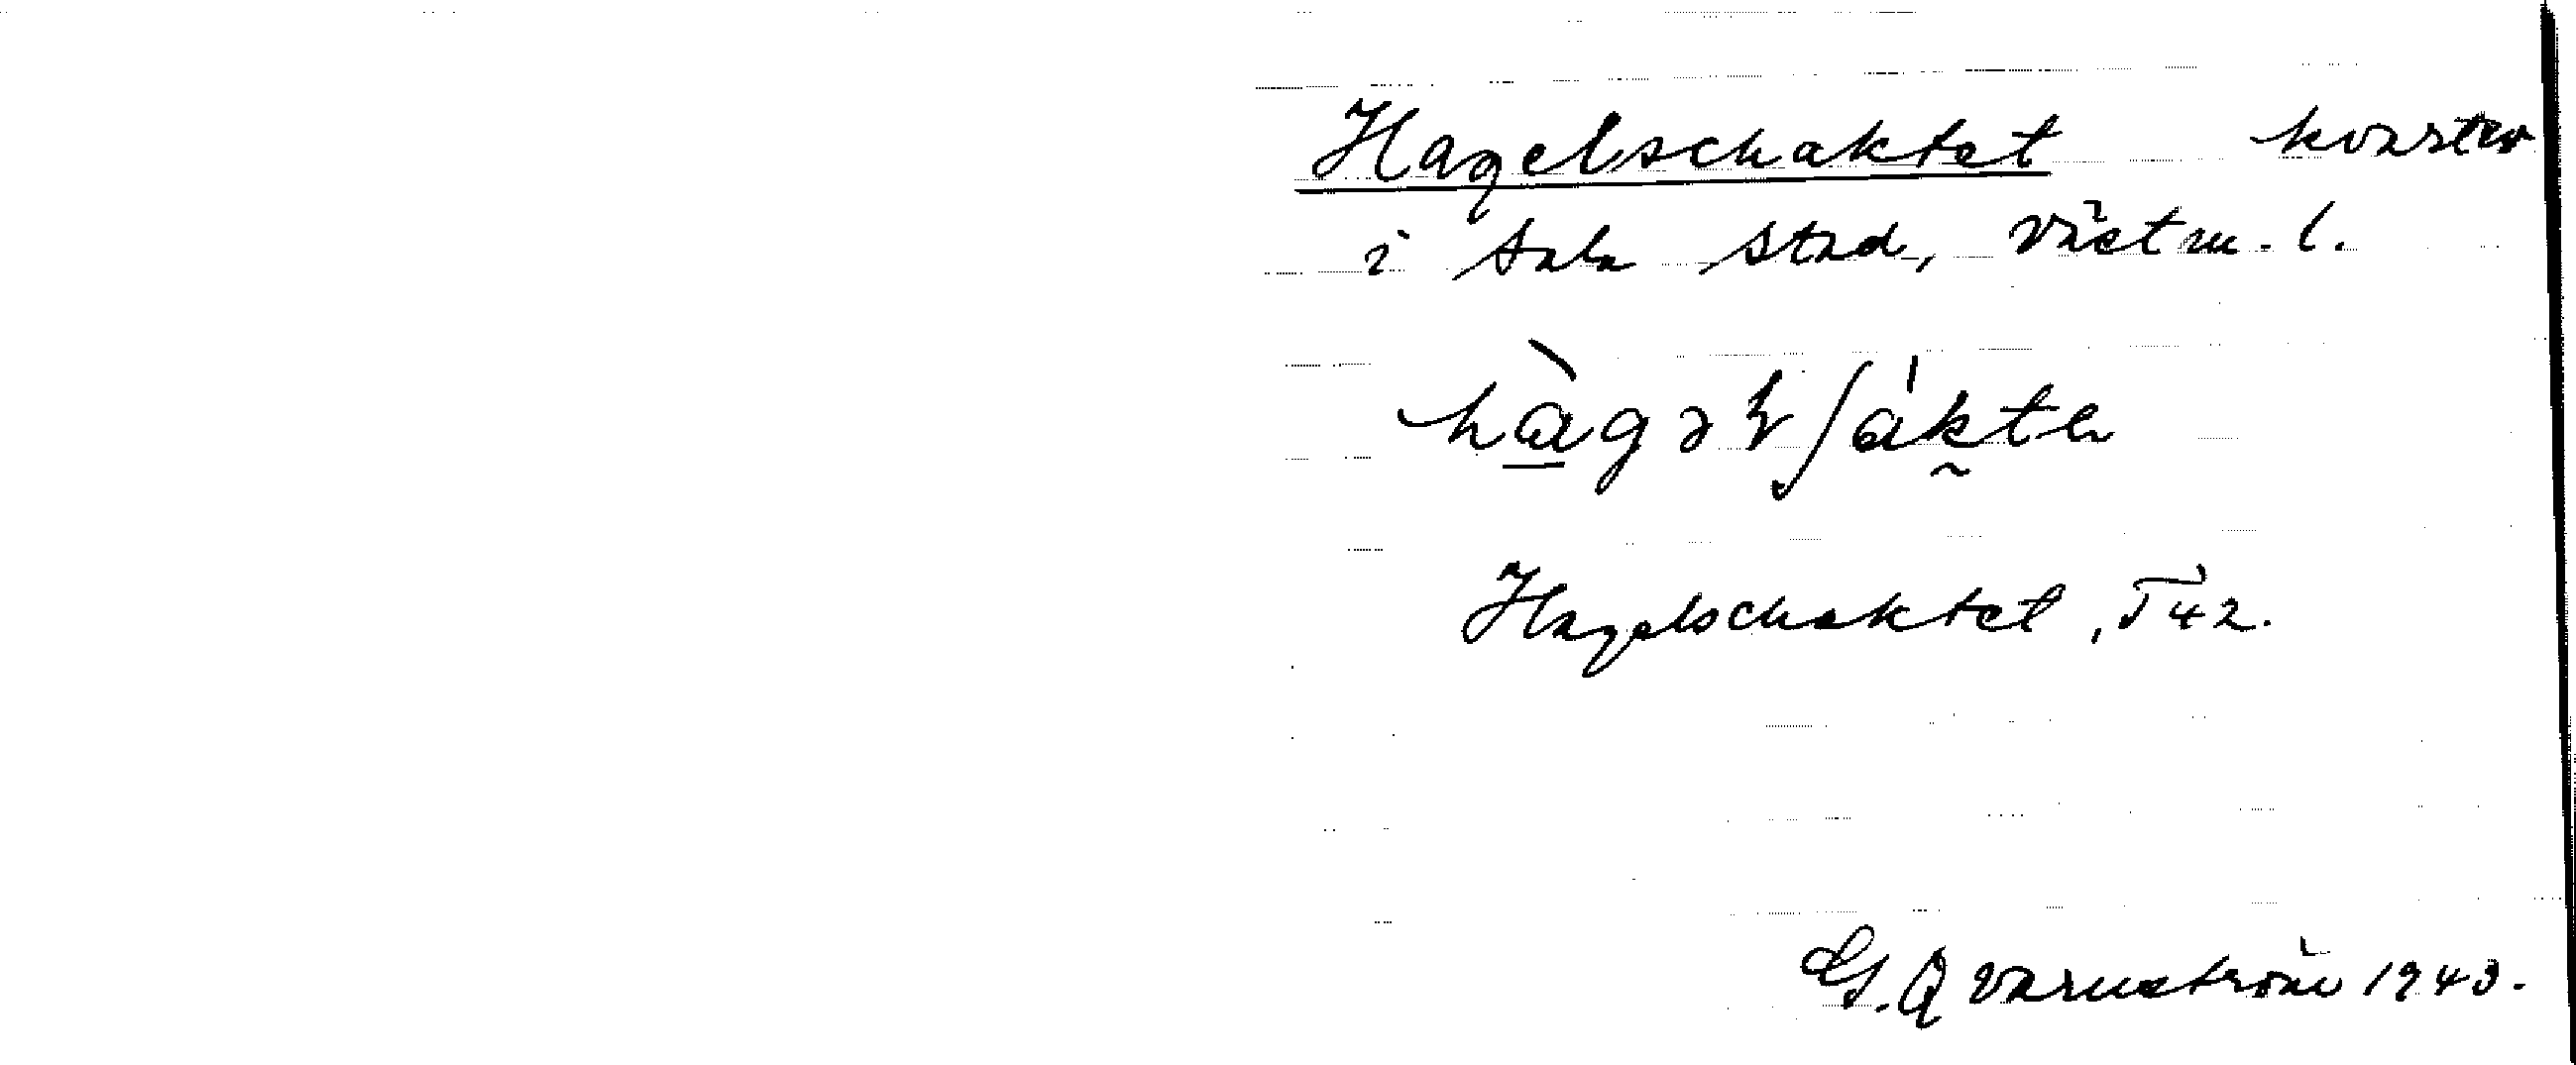 Hagelschaktet kvarter
i Sala stad, Västm. l.
hàgəlʃákte
Hagelschaktet, T 42.
G. Qvarnström 1943.